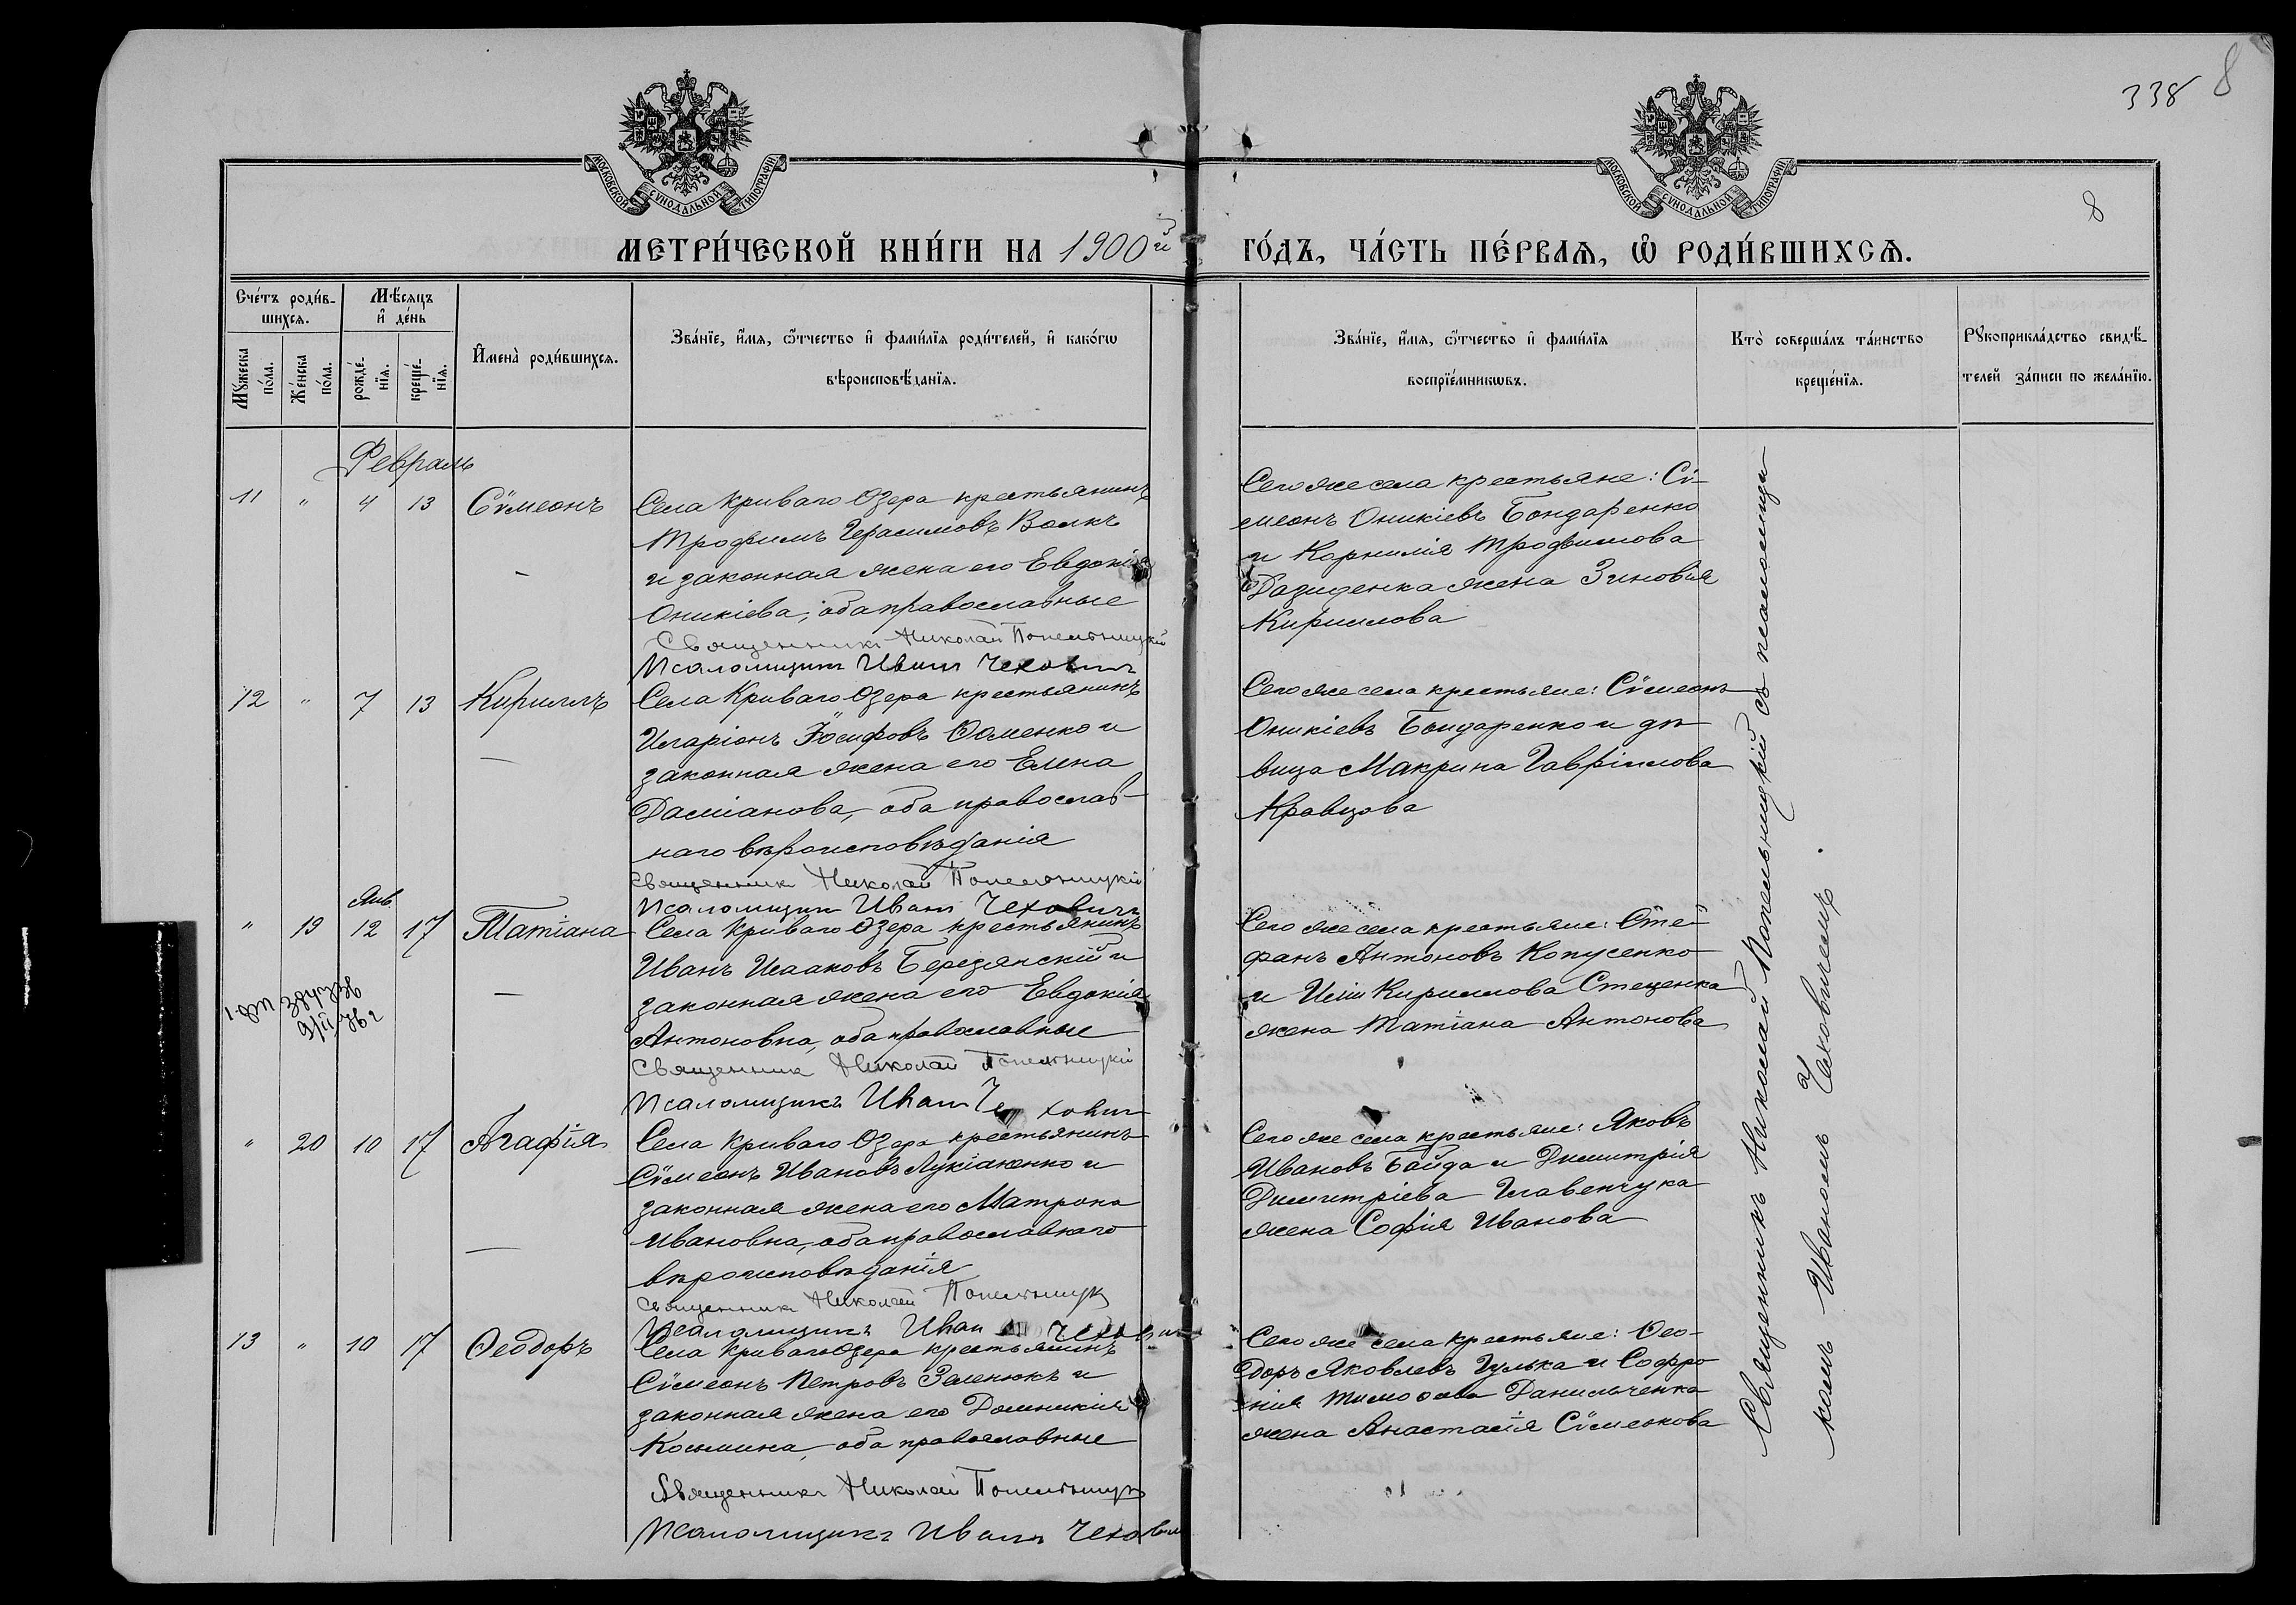 338 8
МОСКОВСКОЙ СѴНОДАЛЬНОЙ ТИПОГРАФІИ
МОСКОВСКОЙ СѴНОДАЛЬНОЙ ТИПОГРАФІИ
8
МЕТРИ́ЧЕСКОЙ КНИ́ГИ НА 1900й ГО́ДЪ, ЧА́СТЬ ПЕ́РВАѦ, Ѡ҆ РОДИ́ВШИХСѦ.
Сче́тъ роди́в-
шихсѧ.
Мꙋжеска по́ла.
Же́нска по́ла.
Мѣ́сѧцъ
и҆ де́нь
рожде́-нїѧ.
креще́-нїѧ.
И҆мена̀ роди́вшихсѧ.
Зва́нїе, и҆́мѧ, ѻ҆́тчество и҆ фами́лїѧ роди́телей, и҆ како́гѡ
вѣроисповѣ́данїѧ.
Зва́нїе, и҆́мѧ, ѻ҆́тчество и҆ фами́лїѧ
воспрїе́мникѡвъ.
Кто̀ соверша́лъ та́инство
креще́нїѧ.
Рꙋкоприкла́дство свидѣ́-
телей за́писи по жела́нїю.
Февраль
11 " 4 13 Сѵмеонъ
Села Криваго Озера крестьянинъ
Трофимъ Герасимовъ Волкъ
и законная жена его Евдокія
Оникіева, оба православные
Священникъ Николай Попельницкій
Псаломщикъ Иванъ Чеховичъ
Сего же села крестьяне: Сѵ-
меонъ Оникіевъ Бондаренко
и Корнилія Трофимова
жена Зиновія
Кириллова
12 " 7 13 Кириллъ
Села Криваго Озера крестьянинъ
Иларіонъ Іосифовъ Ѳоменко и
законная жена его Елена
Даміанова, оба православ-
наго вѣроисповѣданія
Священникъ Николай Попельницкій
Псаломщикъ Иванъ Чеховичъ
Сего же села крестьяне: Сѵмеонъ
Оникіевъ Бондаренко и дѣ-
вица Макрина Гавріилова
Кравцова
Янв.
" 19 12 17 Татіана
Села Криваго Озера крестьянинъ
Иванъ Исааковъ Березянскій и
законная жена его Евдокія
Антоновна, оба православные
Священникъ Николай Попельницкій
Псаломщикъ Иванъ Чеховичъ
Сего же села крестьяне: Сте-
фанъ Антоновъ Копусенко
и Иліи Кириллова Стеценка
жена Татіана Антонова
" 20 10 17 Агафія
Села Криваго Озера крестьянинъ
Сѵмеонъ Ивановъ Лукіаненко и
законная жена его Матрона
Ивановна, оба православнаго
вѣроисповѣданія
Священникъ Николай Попельницк
Псаломщикъ Иван Чехович
Сего же села крестьяне: Яковъ
Ивановъ Байда и Димитрія
Димитріева Главенчука
жена Софія Иванова
13 " 10 17 Ѳеодоръ
Села Криваго Озера крестьянинъ
Сѵмеонъ Петровъ Зеленюкъ и
законная жена его Домникія
Косьмина, оба православные
Священникъ Николай Попельницк
Псаломщикъ Иванъ Чехович
Сего же села крестьяне: Ѳео-
доръ Яковлевъ Гулька и Софро-
нія Тимоѳеева Данильченка
жена Анастасія Сѵмеонова
Священникъ Николай Попельницкій съ псаломщи-
комъ Иваномъ Чеховичемъ.